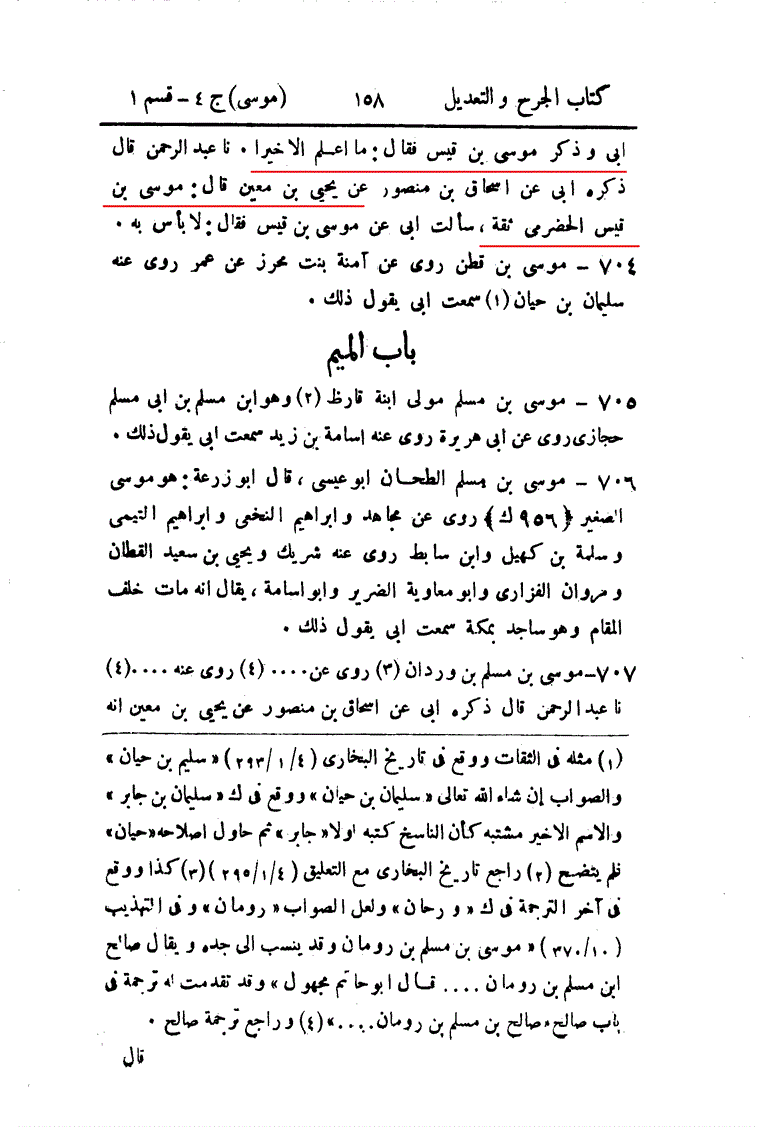 كتاب الجرح والتعديل ١٥٨ (موسى) ج ٤ - قسم ١
ابى وذكر موسى بن قيس فقال: ما اعلم الاخيرا . نا عبد الرحمن قال
ذكره ابى عن اسحاق بن منصور عن يحيى بن معين قال: موسى بن
قيس الحضرمى ثقة ، سألت ابى عن موسى بن قيس فقال: لا بأس به .
٧٠٤ - موسى بن قطن روى عن آمنة بنت محرز عن عمر روى عنه
سليمان بن حيان (١) سمعت ابى يقول ذلك .
باب الميم
٧٠٥ - موسى بن مسلم مولى ابنة قارظ (٢) وهو ابن مسلم بن ابى مسلم
حجازى روى عن ابى هريرة روى عنه اسامة بن زيد سمعت ابى يقول ذلك .
٧٠٦ - موسى بن مسلم الطحان ابو عيسى ، قال ابو زرعة: هو موسى
الصغير ﴿٩٥٦ ك﴾ روى عن مجاهد وابراهيم النخعى وابراهيم التيمى
وسلمة بن كهيل وابن سابط روى عنه شريك ويحيى بن سعيد القطان
ومروان الفزارى وابو معاوية الضرير وابو اسامة ، يقال انه مات خلف
المقام وهو ساجد بمكة سمعت ابى يقول ذلك .
٧٠٧ - موسى بن مسلم بن وردان (٣) روى عن.... (٤) روى عنه ....(٤)
نا عبد الرحمن قال ذكره ابى عن اسحاق بن منصور عن يحيى بن معين انه
(١) مثله فى الثقات ووقع فى تاريخ البخارى (٢٩٣/١/٤) «سليم بن حيان»
والصواب إن شاء الله تعالى «سليمان بن حيان» ووقع فى ك «سليمان بن جابر»
والاسم الاخير مشتبه كأن الناسخ كتبه اولا «جابر» ثم حاول اصلاحه «حيان»
فلم يتضح (٢) راجع تاريخ البخارى مع التعليق (٢٩٥/١/٤) (٣) كذا ووقع
فى آخر الترجمة فى ك «ورحان» ولعل الصواب «رومان» وفى التهذيب
(٣٧٠/١٠) «موسى بن مسلم بن رومان وقد ينسب الى جده ويقال صالح
ابن مسلم بن رومان .... قال ابو حاتم مجهول» وقد تقدمت له ترجمة فى
باب صالح «صالح بن مسلم بن رومان....» (٤) وراجع ترجمة صالح .
قال